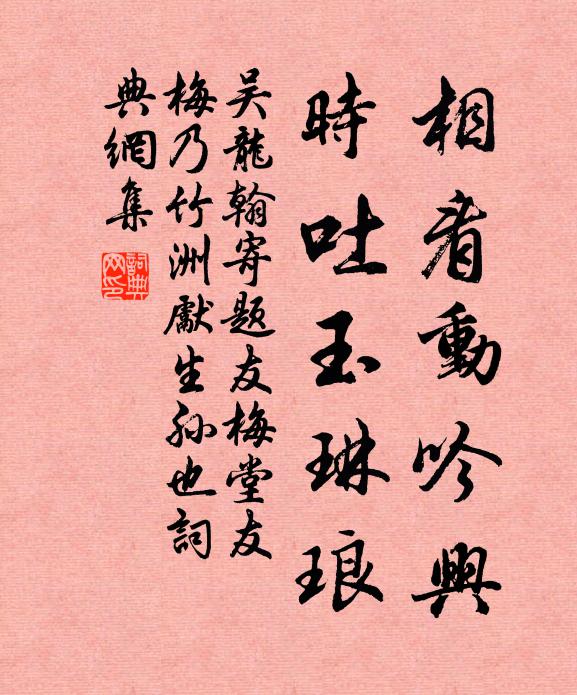 相看動吟興
時吐玉琳琅
吴龍翰寄题友梅堂友
梅乃竹洲獻生孙也詞
典網集
詞典
网印